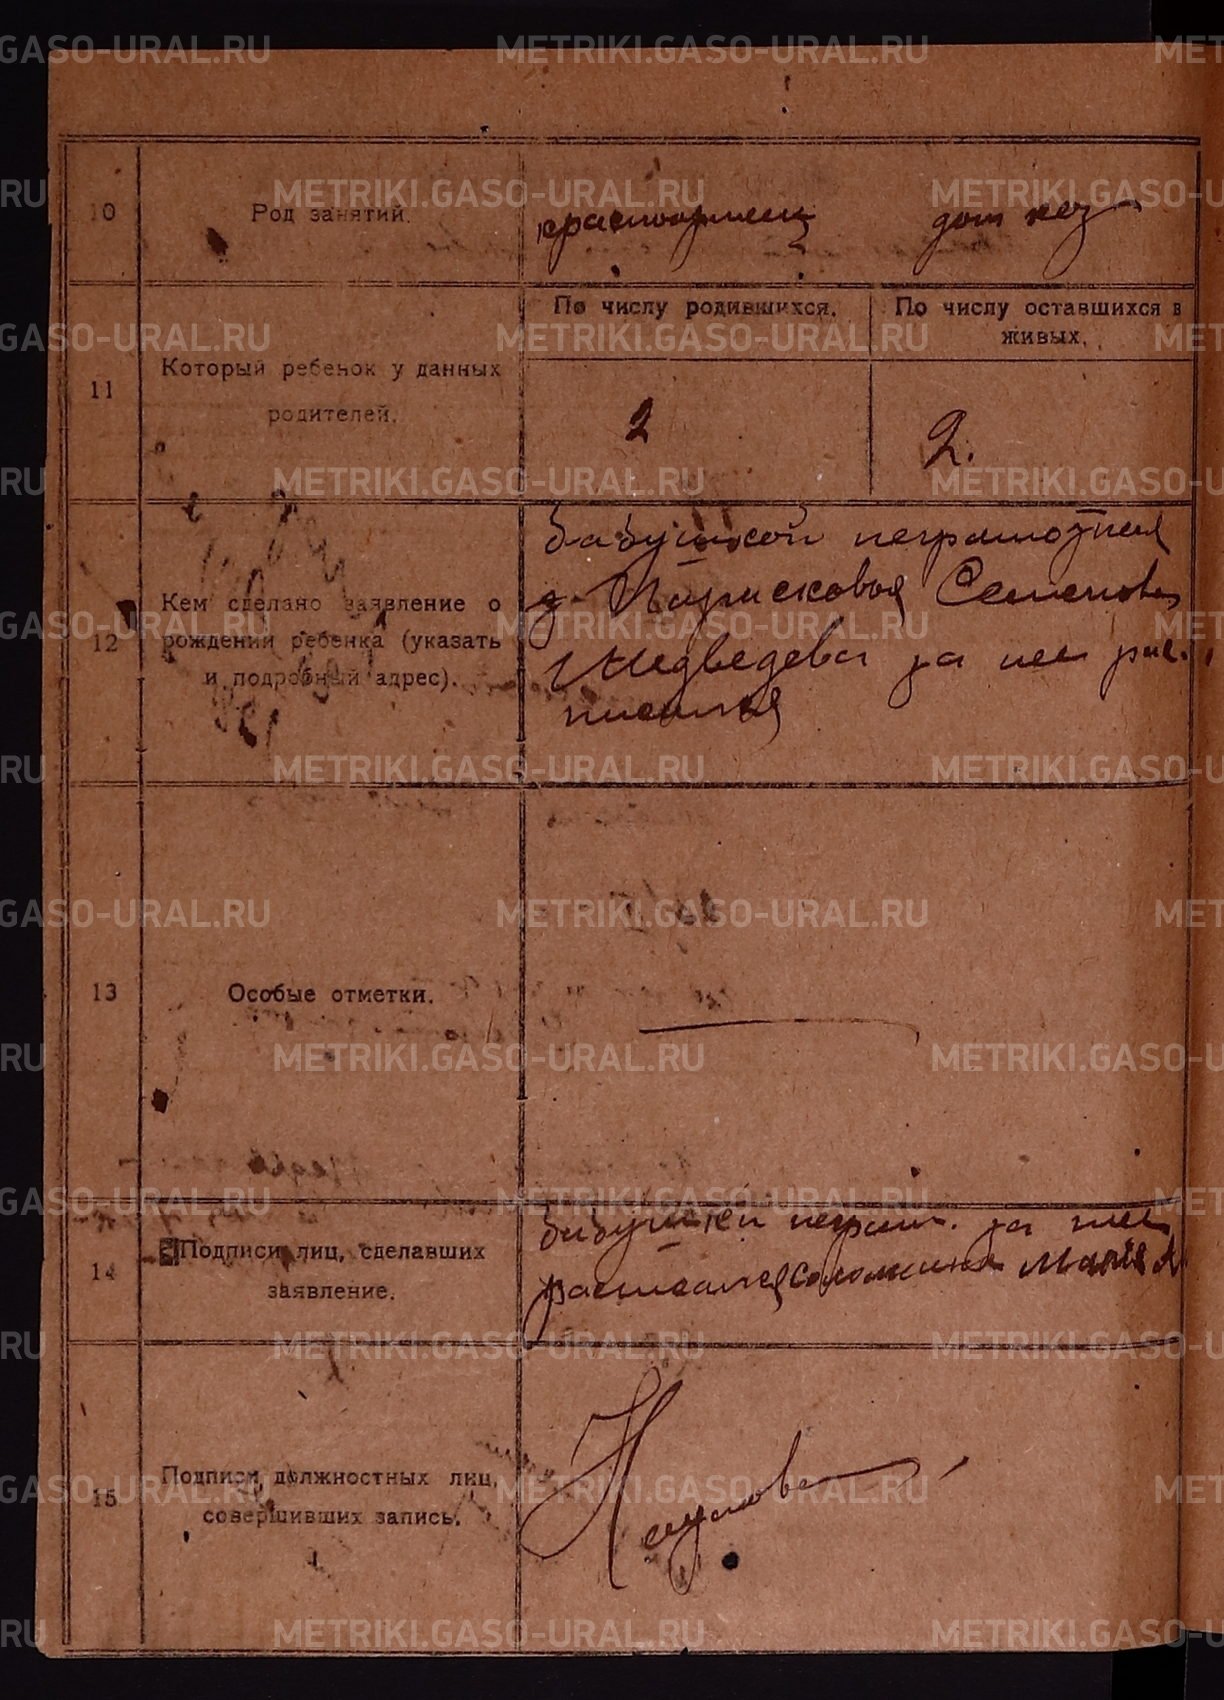 10
Род занятий.
красноармеец
дом хоз
11
Который ребенок у данных
родителей.
По числу родившихся.
По числу оставшихся в
живых.
2
2.
12
Кем сделано заявление о
рождении ребенка (указать
и подробный адрес).
бабушкой неграмотная
Семеновна
Медведева за нее рас-
писалься
13
Особые отметки.
14
Подписи лиц, сделавших
заявление.
бабушки неграм. за нее
расписался Мария А
15
Подписи должностных лиц,
совершивших запись.
METRIKI.GASO-URAL.RU